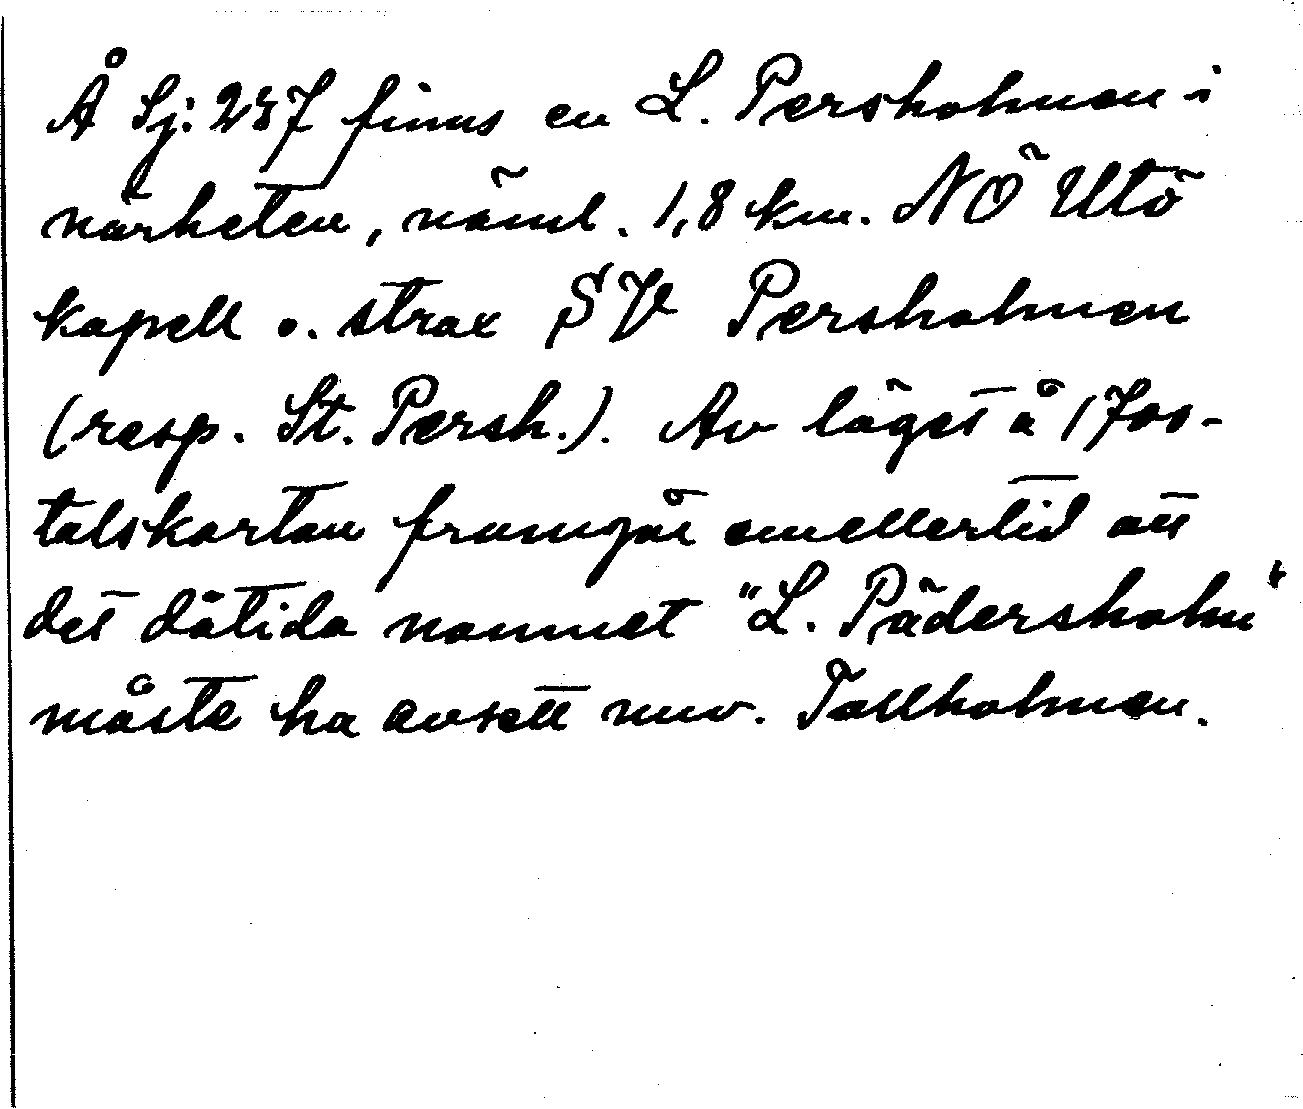 Å Sj: 237 finns en L. Persholmen i
närheten, näml. 1,8 km. NÖ Utö
kapell o. strax SV Persholmen
(resp. St. Persh.). Av läget å 1700-
talskartan framgår emellertid att
det dåtida namnet "L. Pädersholm"
måste ha avsett nuv. Tallholmen.